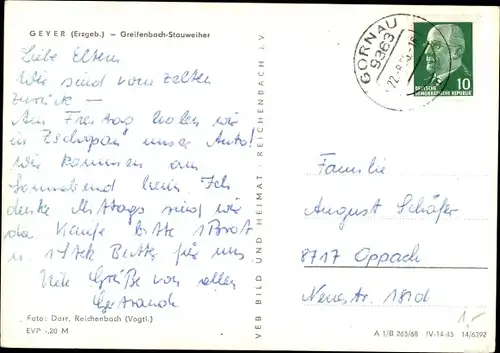 GEYER (Erzgeb.) – Greifenbach-Stauweiher
Liebe Eltern
Wir sind vom zelten
zurück —
Am Freitag holen wir
in "Zschopau" unser Auto!
Wir kommen am
Sonnabend heim. Ich
denke Mittags sind wir
da Kaufe bitte 1 Brot
u. 1 Stck Butter für uns
Viele Grüße von allen
Gertraude
Foto: Darr, Reichenbach (Vogtl.)
EVP -,20 M
VEB BILD UND HEIMAT · REICHENBACH I. V.
GORNAU
9363
DEUTSCHE
DEMOKRATISCHE REPUBLIK
10
Familie
August Schäfer
8717 Oppach
Neue str. 18 d
1,-
A 1/B 265/68 IV-14-45 14/6392